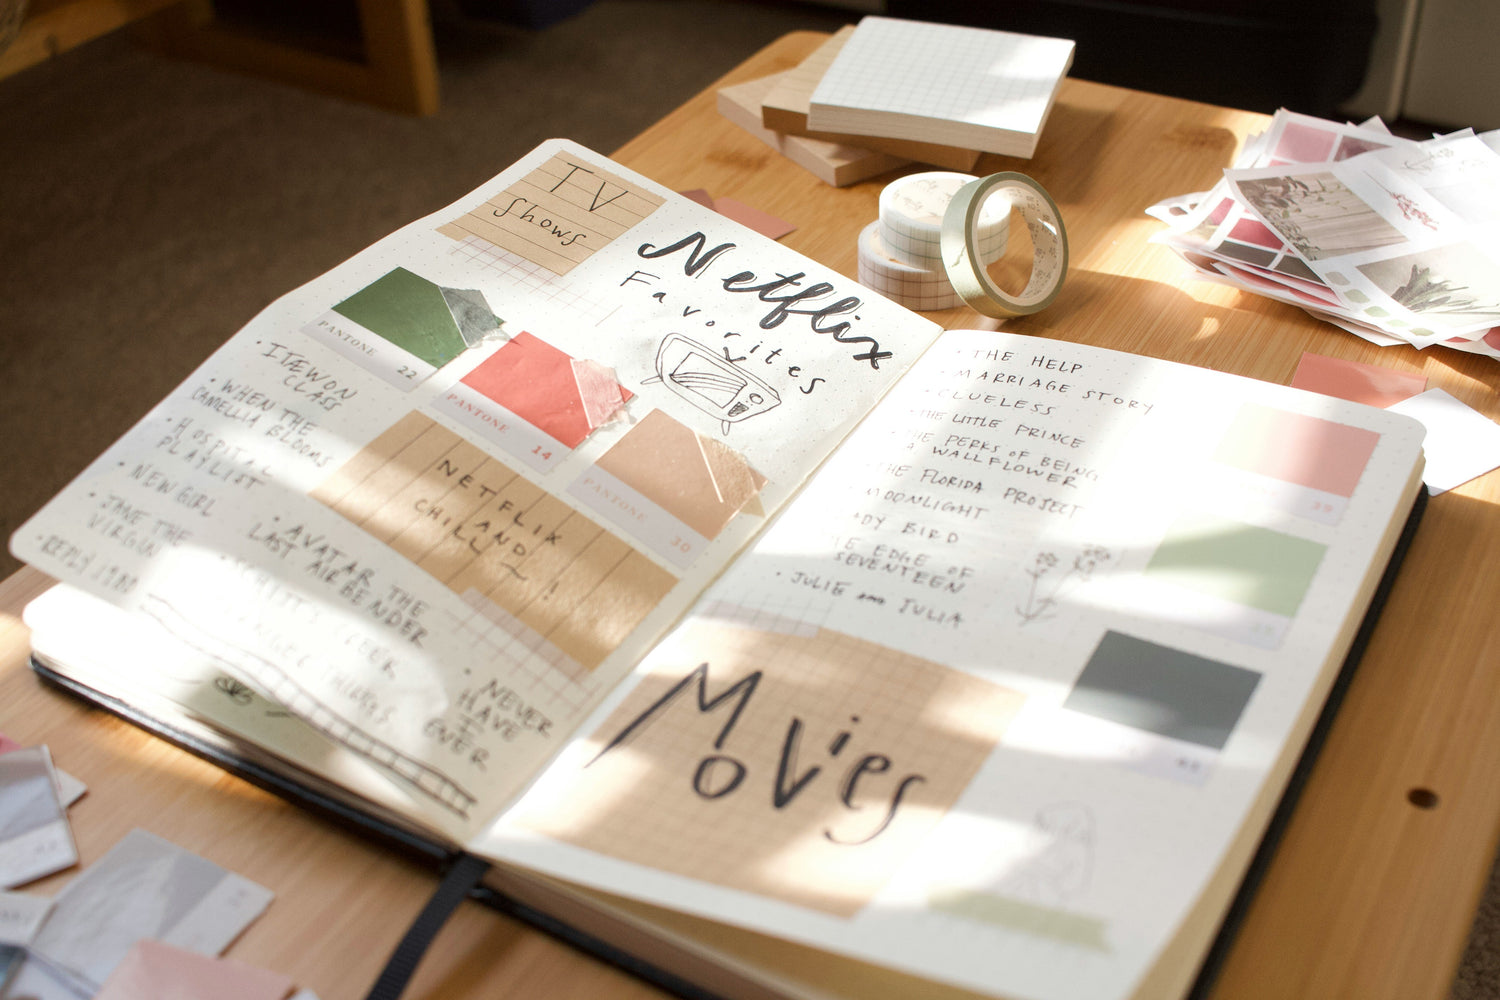 TV
Shows
Netflix
Favorites
PANTONE
22
PANTONE
14
PANTONE
30
• ITAEWON
CLASS
• WHEN THE
CAMELLIA BLOOMS
• HOSPITAL
PLAYLIST
• NEW GIRL
• JANE THE
VIRGIN
• REPLY 1988
NETFLIX
AND
CHILL!
• AVATAR THE
LAST AIRBENDER
• NEVER
HAVE
I
EVER
• THE HELP
• MARRIAGE STORY
• CLUELESS
• THE LITTLE PRINCE
THE PERKS OF BEING
A WALLFLOWER
THE FLORIDA PROJECT
MOONLIGHT
DY BIRD
E EDGE OF
SEVENTEEN
• JULIE AND JULIA
39
Movies